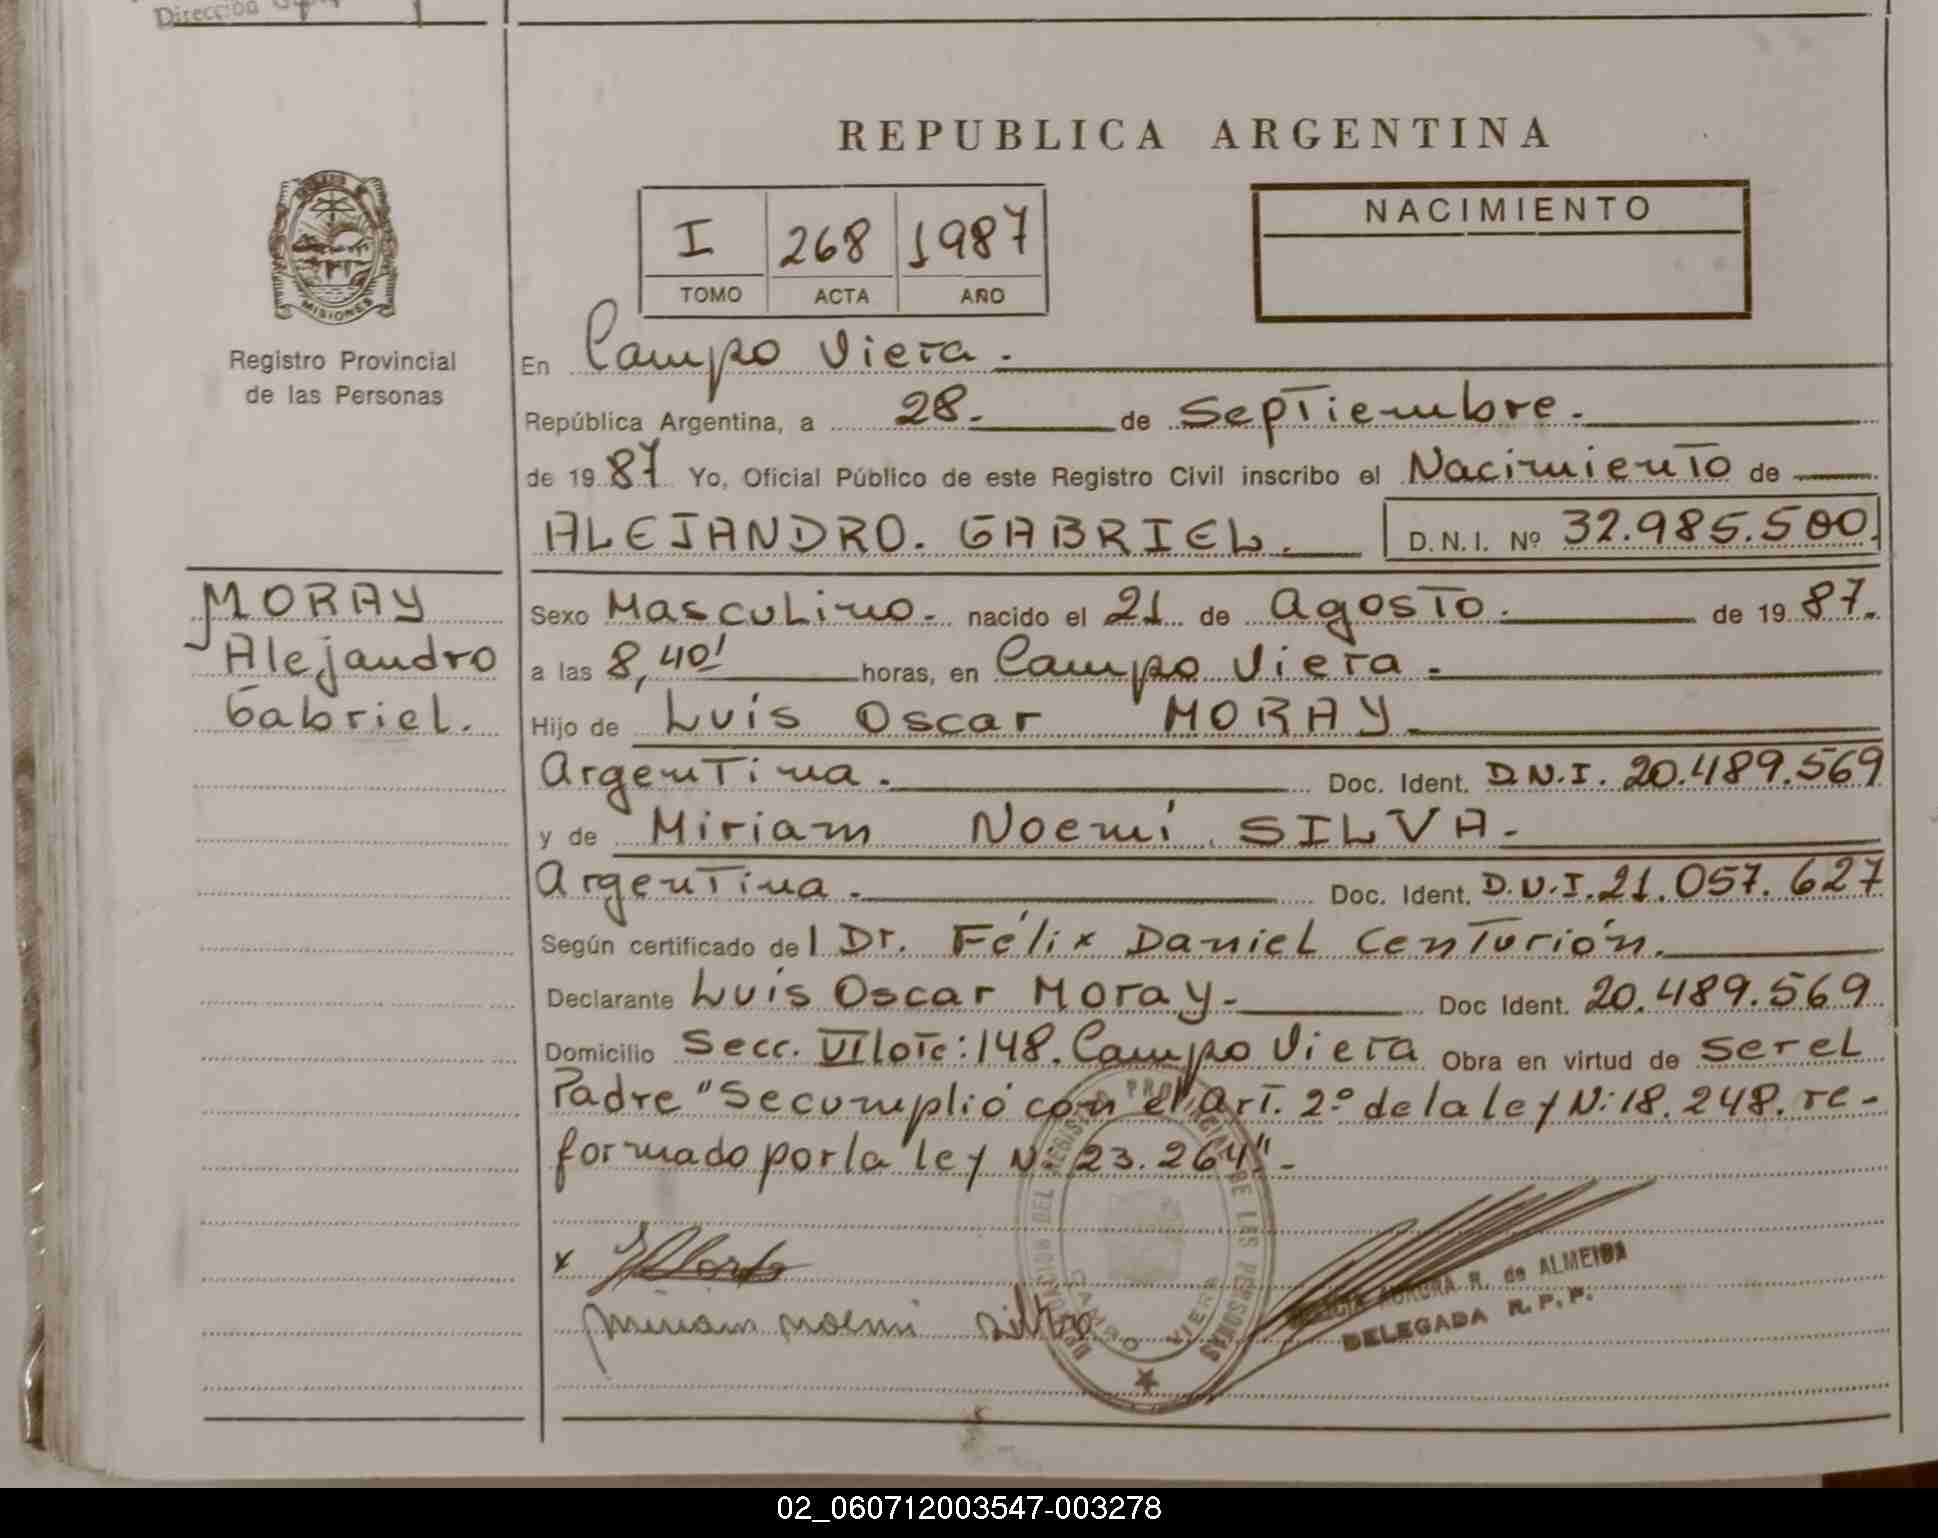 Dirección
REPUBLICA ARGENTINA
MISIONES
Registro Provincial
de las Personas
I 268 1987
TOMO ACTA AÑO
NACIMIENTO
En Campo Viera.
República Argentina, a 28. de Septiembre.
de 1987 Yo, Oficial Público de este Registro Civil inscribo el Nacimiento de
ALEJANDRO. GABRIEL. D.N.I. Nº 32.985.500
MORAY
Alejandro
Gabriel.
Sexo Masculino. nacido el 21 de Agosto. de 1987.
a las 8,40' horas, en Campo Viera.
Hijo de Luis Oscar MORAY.
Argentina. Doc. Ident. D.N.I. 20.489.569
y de Miriam Noemí SILVA.
Argentina. Doc. Ident. D.N.I. 21.057.627
Según certificado del Dr. Félix Daniel Centurión.
Declarante Luis Oscar Moray. Doc Ident. 20.489.569
Domicilio Secc. VI lote: 148. Campo Viera Obra en virtud de ser el
Padre "Se cumplió con el Art. 2º de la ley N: 18.248. re-
formado por la ley N: 23.264".
x
miriam noemi silva
CAMPO VIERA
AURORA R. de ALMEIDA
DELEGADA R.P.P.
02_060712003547-003278